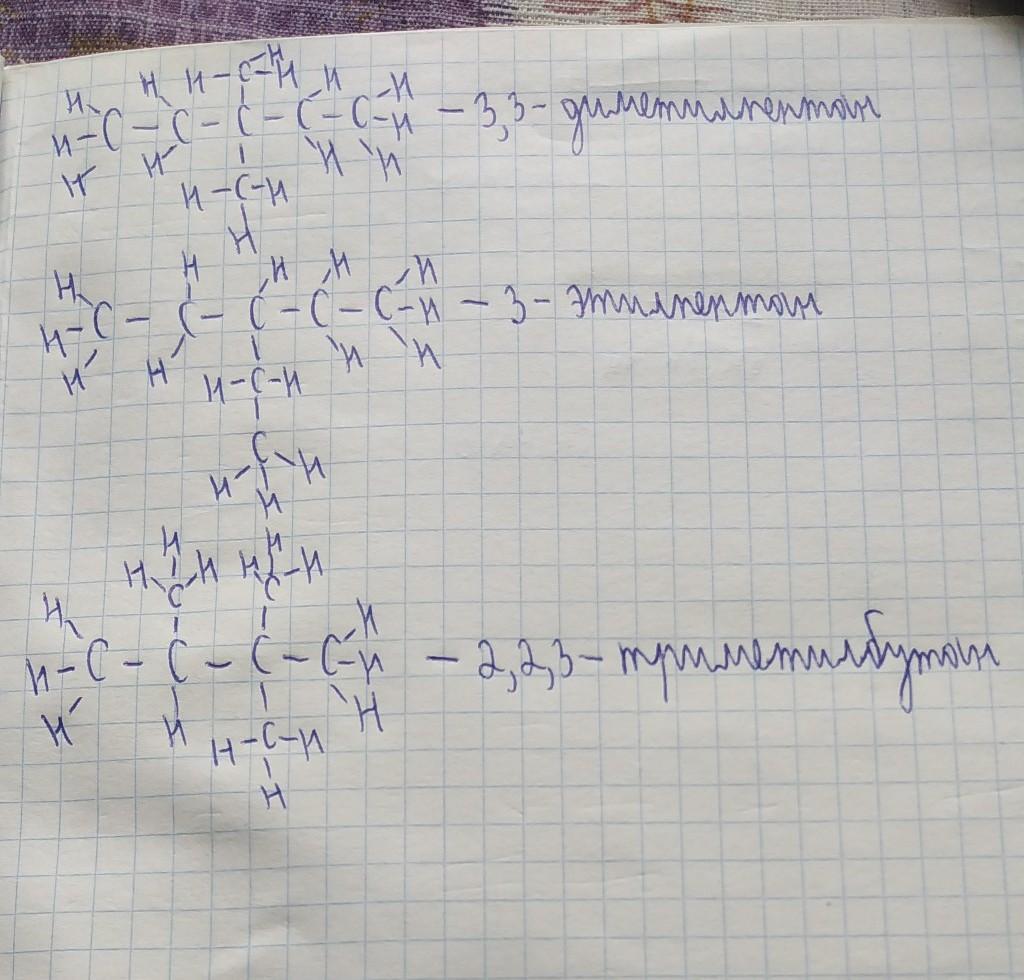 H H H-C-H H H H
H-C-C-C-C-C-H - 3,3-диметилпентан
H H H H
H-C-H
H
H H H H H
H-C-C-C-C-C-H - 3-этилпентан
H H H H
H-C-H
C
H H H
H H
H C H H C H
H H
H-C-C-C-C-H - 2,2,3-триметилбутан
H H H
H-C-H
H